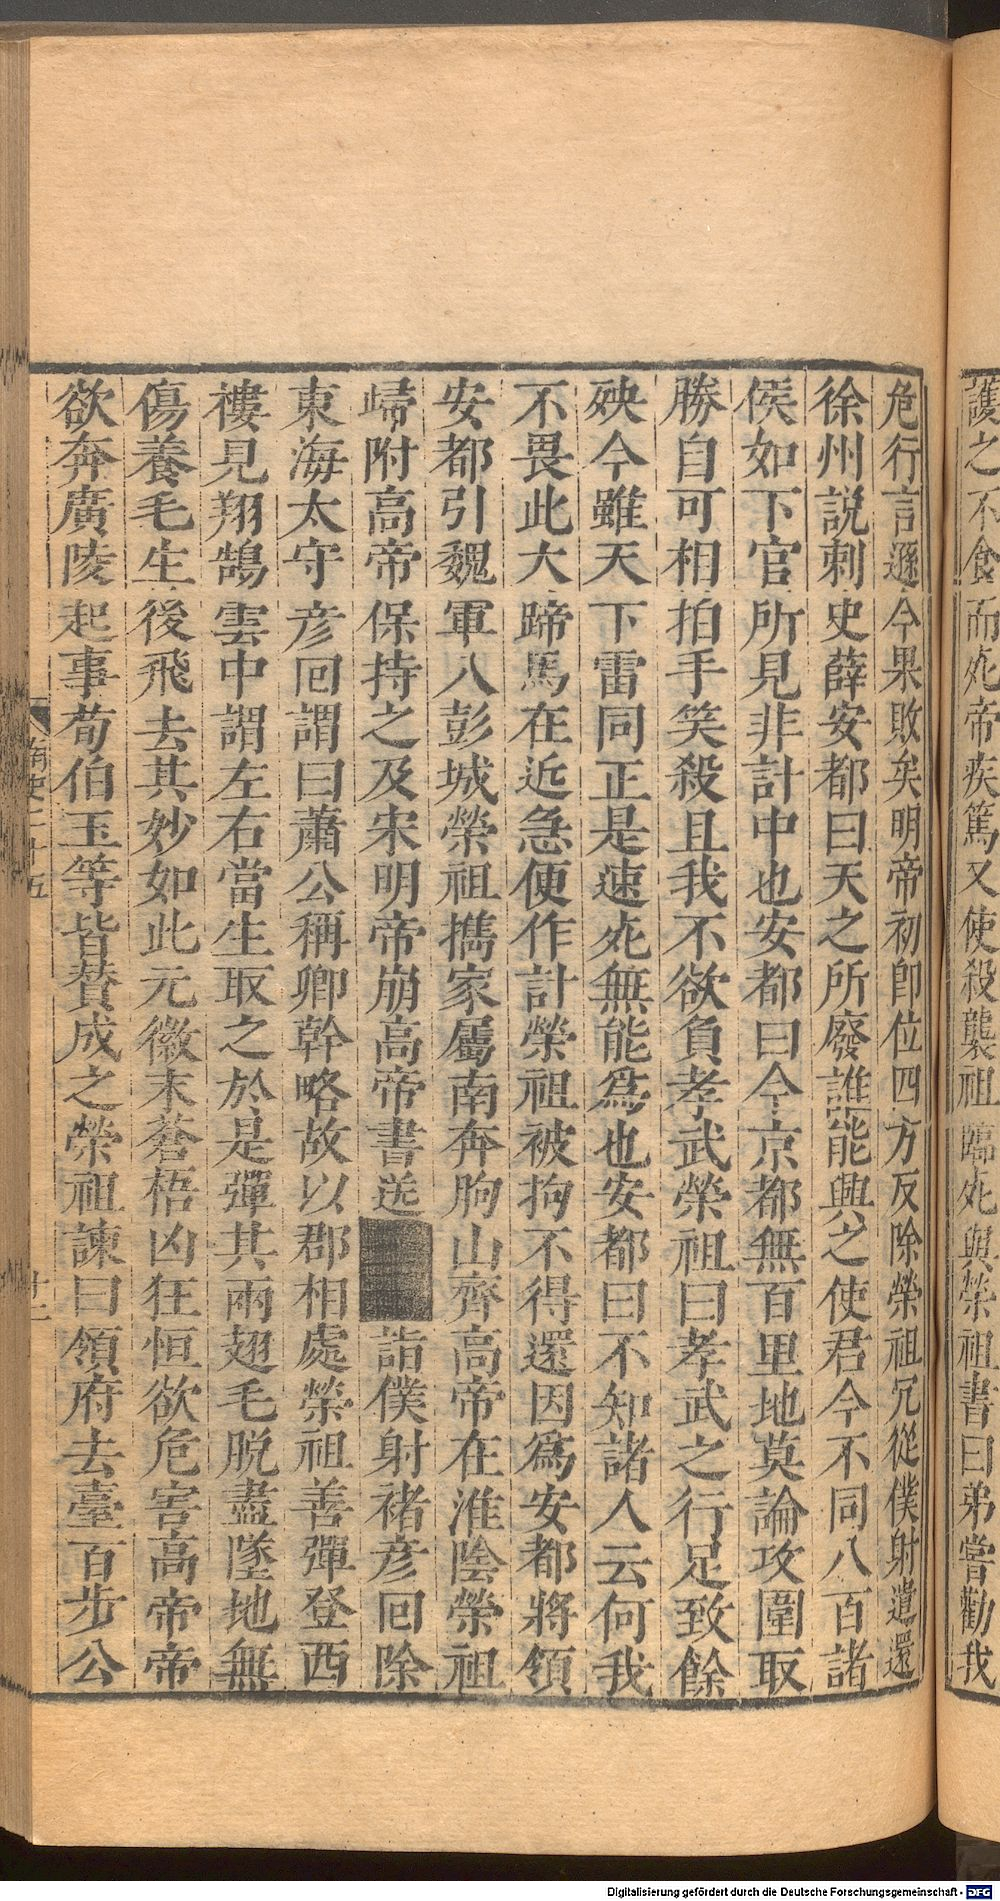 護之不食而死帝疾篤又使殺襲祖臨死與榮祖書曰弟嘗勸我
危行言遜今果敗矣明帝初卽位四方反除榮祖冗從僕射遣還
徐州說刺史薛安都曰天之所廢誰能興之使君今不同八百諸
侯如下官所見非計中也安都曰今京都無百里地莫論攻圍取
勝自可相拍手笑殺且我不欲負孝武榮祖曰孝武之行足致餘
殃今雖天下雷同正是速死無能爲也安都曰不知諸人云何我
不畏此大蹄馬在近急便作計榮祖被拘不得還因爲安都將領
安都引魏軍入彭城榮祖攜家屬南奔朐山齊高帝在淮陰榮祖
歸附高帝保持之及宋明帝崩高帝書送詣僕射褚彦回除
東海太守彦回謂曰蕭公稱卿幹略故以郡相處榮祖善彈登西
樓見翔鵠雲中謂左右當生取之於是彈其兩翅毛脫盡墜地無
傷養毛生後飛去其妙如此元徽末蒼梧凶狂恒欲危害高帝帝
欲奔廣陵起事荀伯玉等皆贊成之榮祖諫曰領府去臺百步公
南史二十五
十二
Digitalisierung gefördert durch die Deutsche Forschungsgemeinschaft - DFG